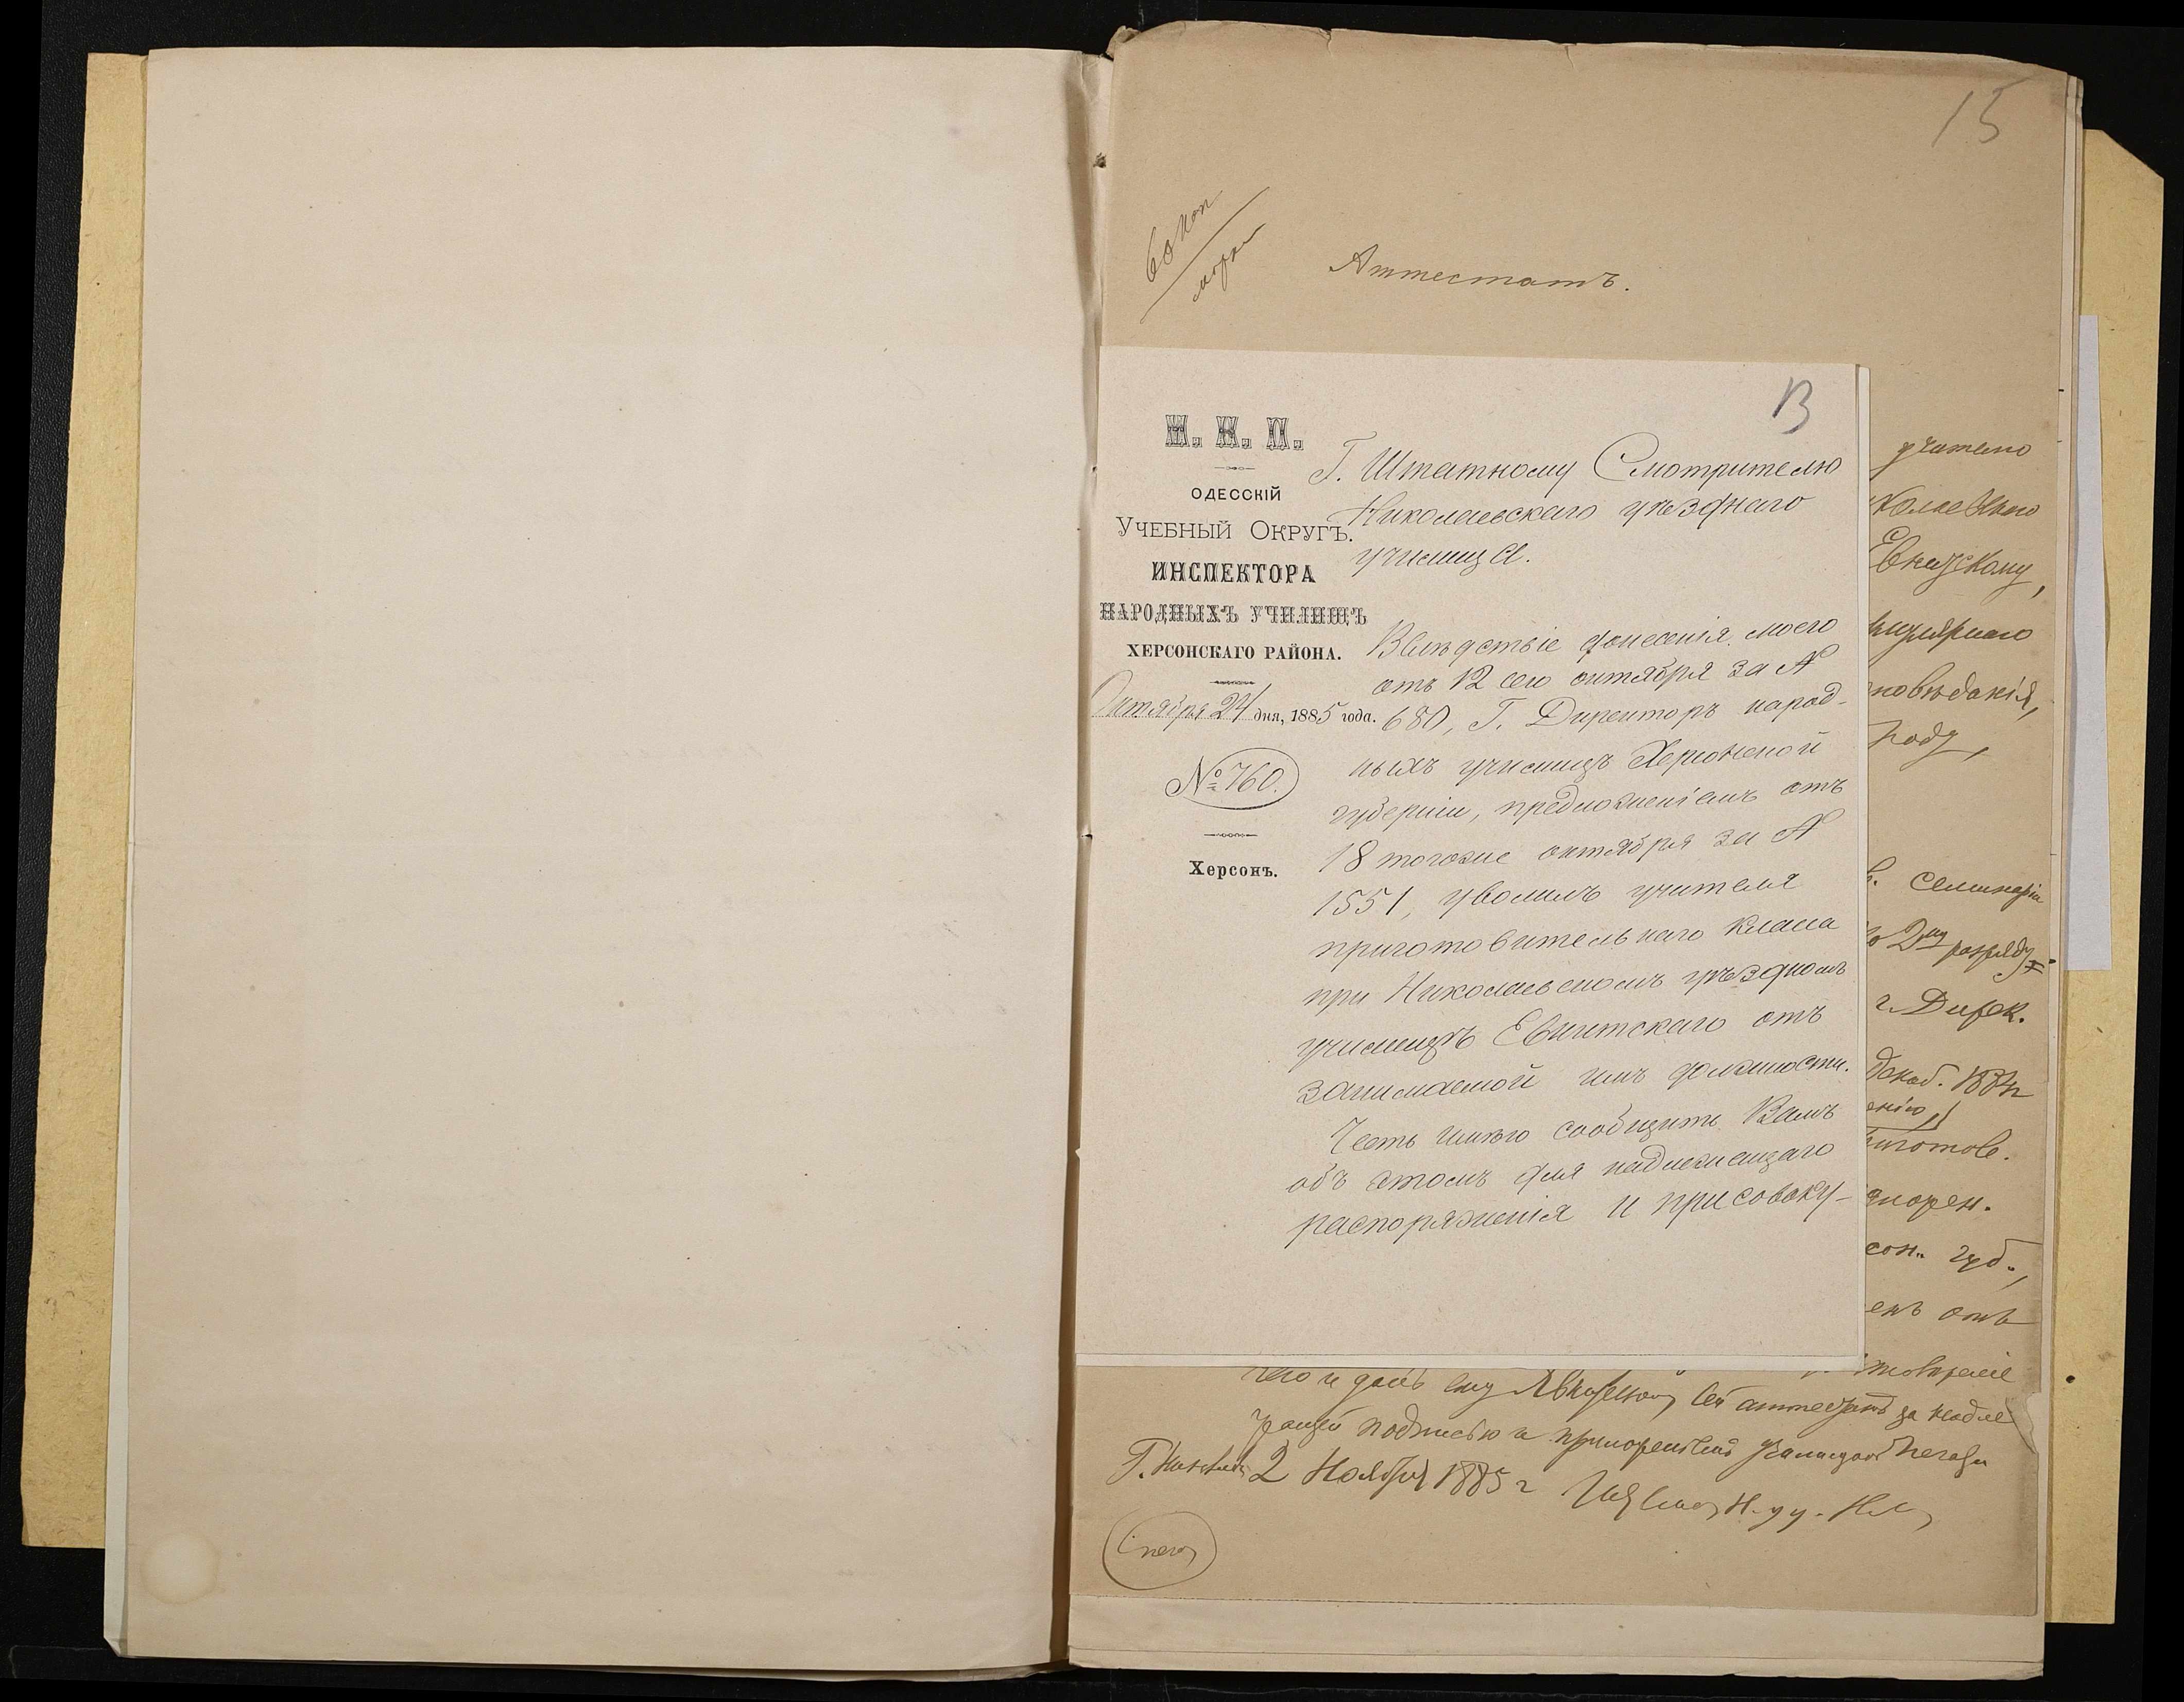 15
60 коп
марки
Аттестатъ.
13
М. Н. П.
ОДЕССКІЙ
УЧЕБНЫЙ ОКРУГЪ.
ИНСПЕКТОРА
НАРОДНЫХЪ УЧИЛИЩЪ
ХЕРСОНСКАГО РАЙОНА.
Октября 24 дня, 1885 года.
№ 760.
Херсонъ.
Г. Штатному Смотрителю
Николаевскаго уѣзднаго
училища.
Вслѣдствіе донесенія моего
отъ 12 сего октября за №
680, Г. Директоръ народ-
ныхъ училищъ Херсонской
губерніи, предложеніемъ отъ
18 тогоже октября за №
1551, уволилъ учителя
приготовительнаго класса
при Николаевскомъ уѣздномъ
училищѣ Евнитскаго отъ
занимаемой имъ должности.
Честь имѣю сообщить Вамъ
объ этомъ для надлежащаго
распоряженія и присовоку-
учителю
Евнитскому,
новѣданія,
году,
семинаріи
2му разряду
г. Дирек.
1884
енію,
иготов.
сон. губ.,
енъ отъ
чего и данъ ему сей аттестатъ за надле
жащей подписью и приложеніемъ казенной печати
Г. Николаевъ 2 Ноября 1885 г